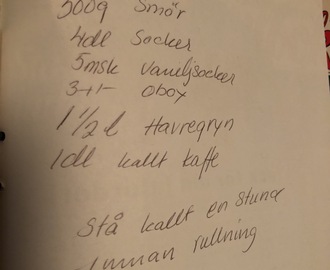 500g Smör
4dl Socker
5msk Vaniljsocker
3-4 Oboy
1 1/2 l Havregryn
1dl kallt kaffe
Stå kallt en stund
innan rullning